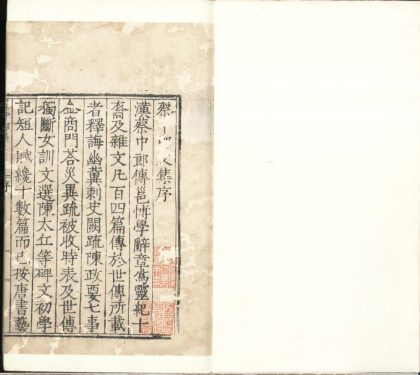 蔡中郎文集序
漢蔡中郎傳邕博學辭章爲靈紀十
裔及雜文凡百四篇傳於世傳所載
者釋誨幽冀刺史闕疏陳政要七事
金商門荅災異疏被收時表及世傳
獨斷女訓文選陳太丘等碑文初學
記短人賦纔十數篇而已按唐書藝